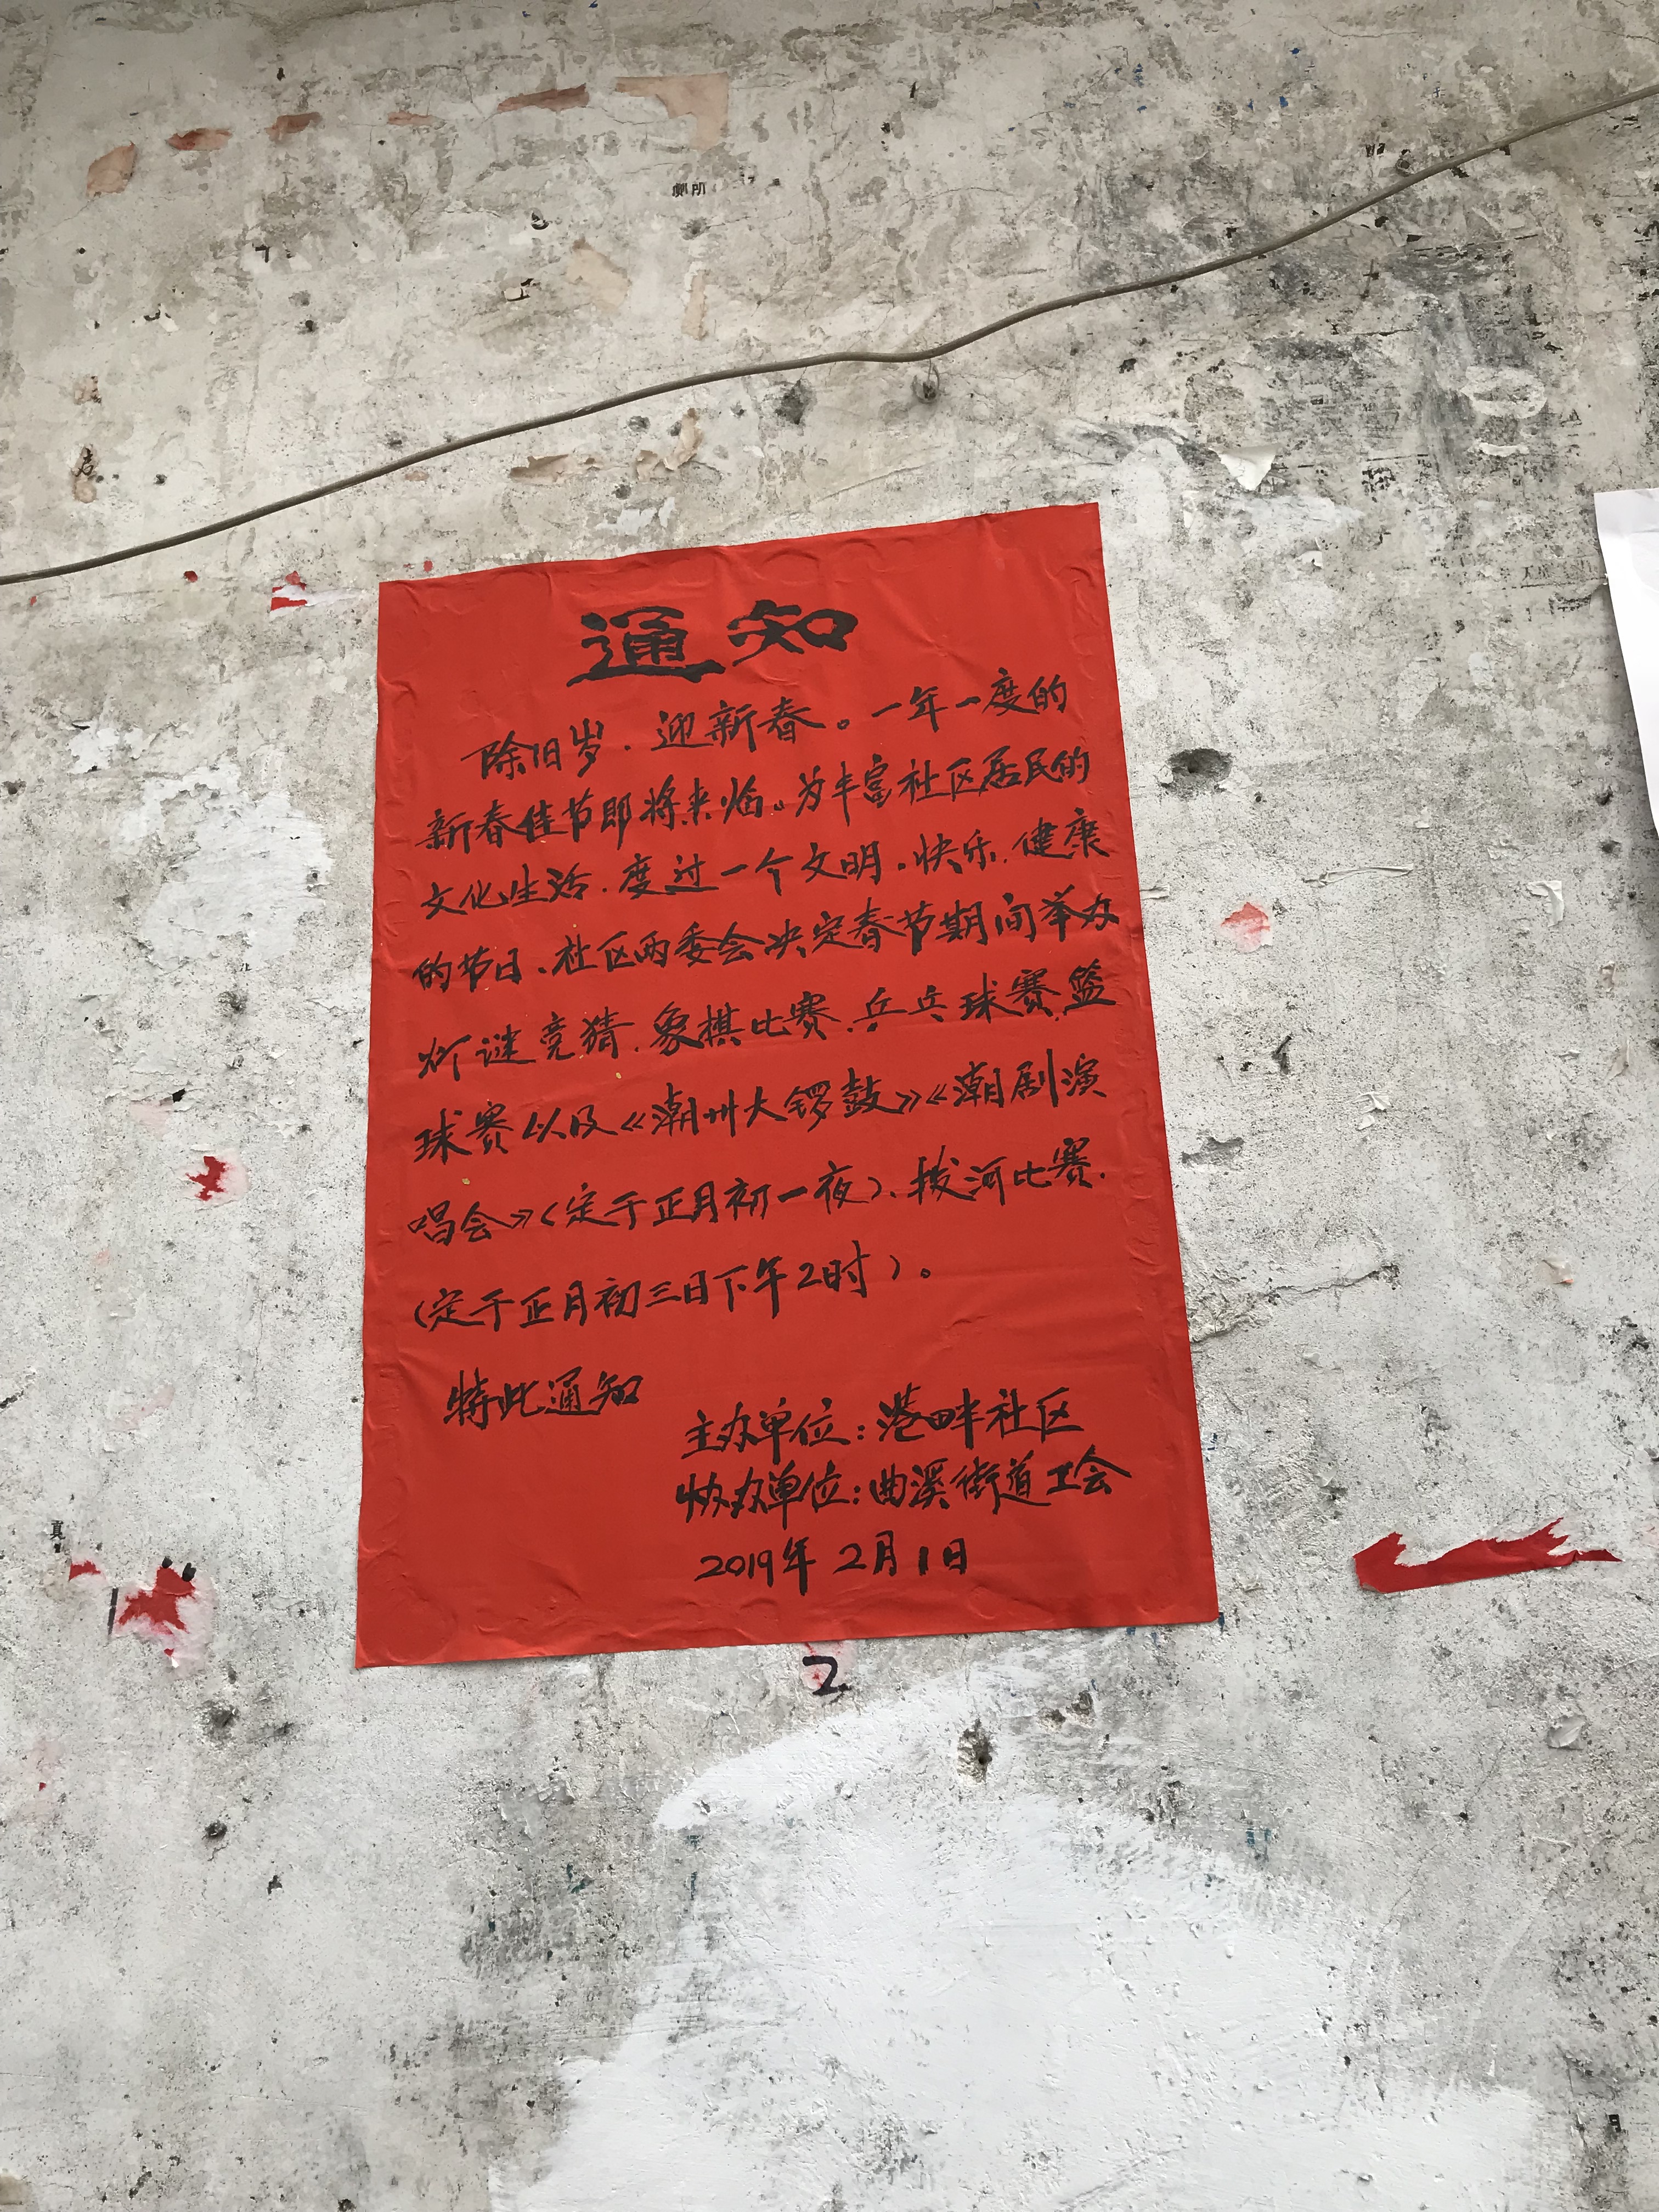 厕所
通知
除旧岁、迎新春。一年一度的
新春佳节即将来临。为丰富社区居民的
文化生活、度过一个文明、快乐、健康
的节日、社区两委会决定春节期间举办
灯谜竞猜、象棋比赛、乒乓球赛、篮
球赛以及《潮州大锣鼓》《潮剧演
唱会》(定于正月初一夜)、拔河比赛、
(定于正月初三日下午2时)。
特此通知
主办单位:港畔社区
协办单位:曲溪街道工会
2019年2月1日
2